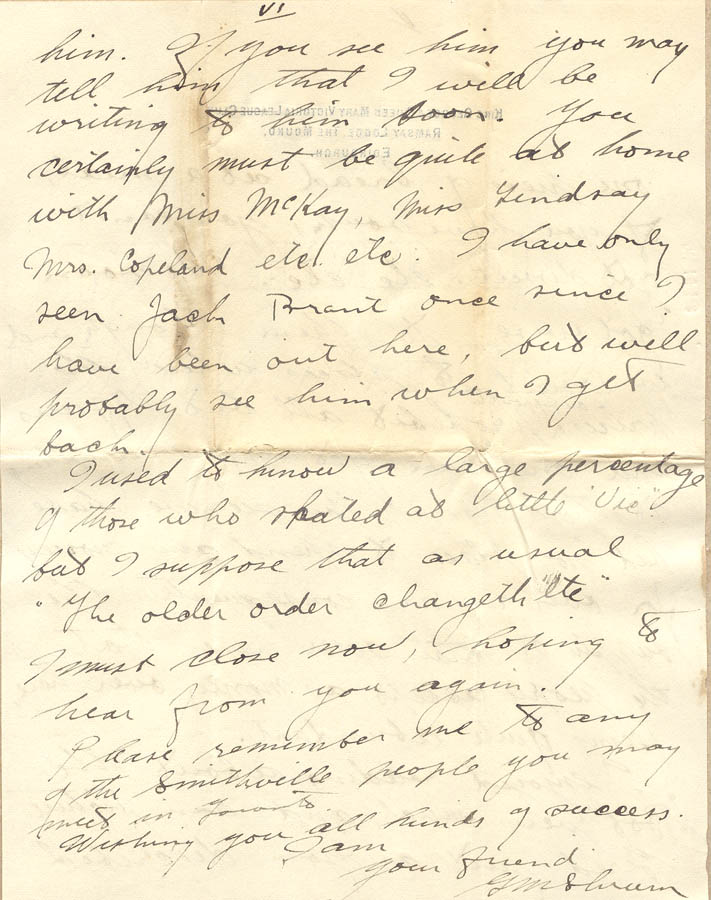 VI
him. If you see him you may
tell him that I will be
writing to him soon. You
certainly must be quite at home
with Miss McKay, Miss Lindsay
Mrs. Copeland etc. etc. I have only
seen Jack Brant once since I
have been out here, but will
probably see him when I get
back.
I used to know a large percentage
of those who skated at little "Vic"
but I suppose that as usual
"The older order changeth etc"
I must close now, hoping to
hear from you again.
Please remember me to any
of the Smithville people you may
meet in Toronto.
Wishing you all kinds of success.
I am
your friend
GM Shrum
KING GEORGE & QUEEN MARY VICTORIA LEAGUE CLUB
RAMSAY LODGE, THE MOUND,
EDINBURGH.